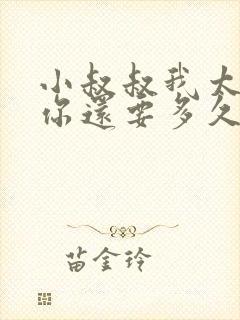 小叔叔我太
你還要多久
苗金玲